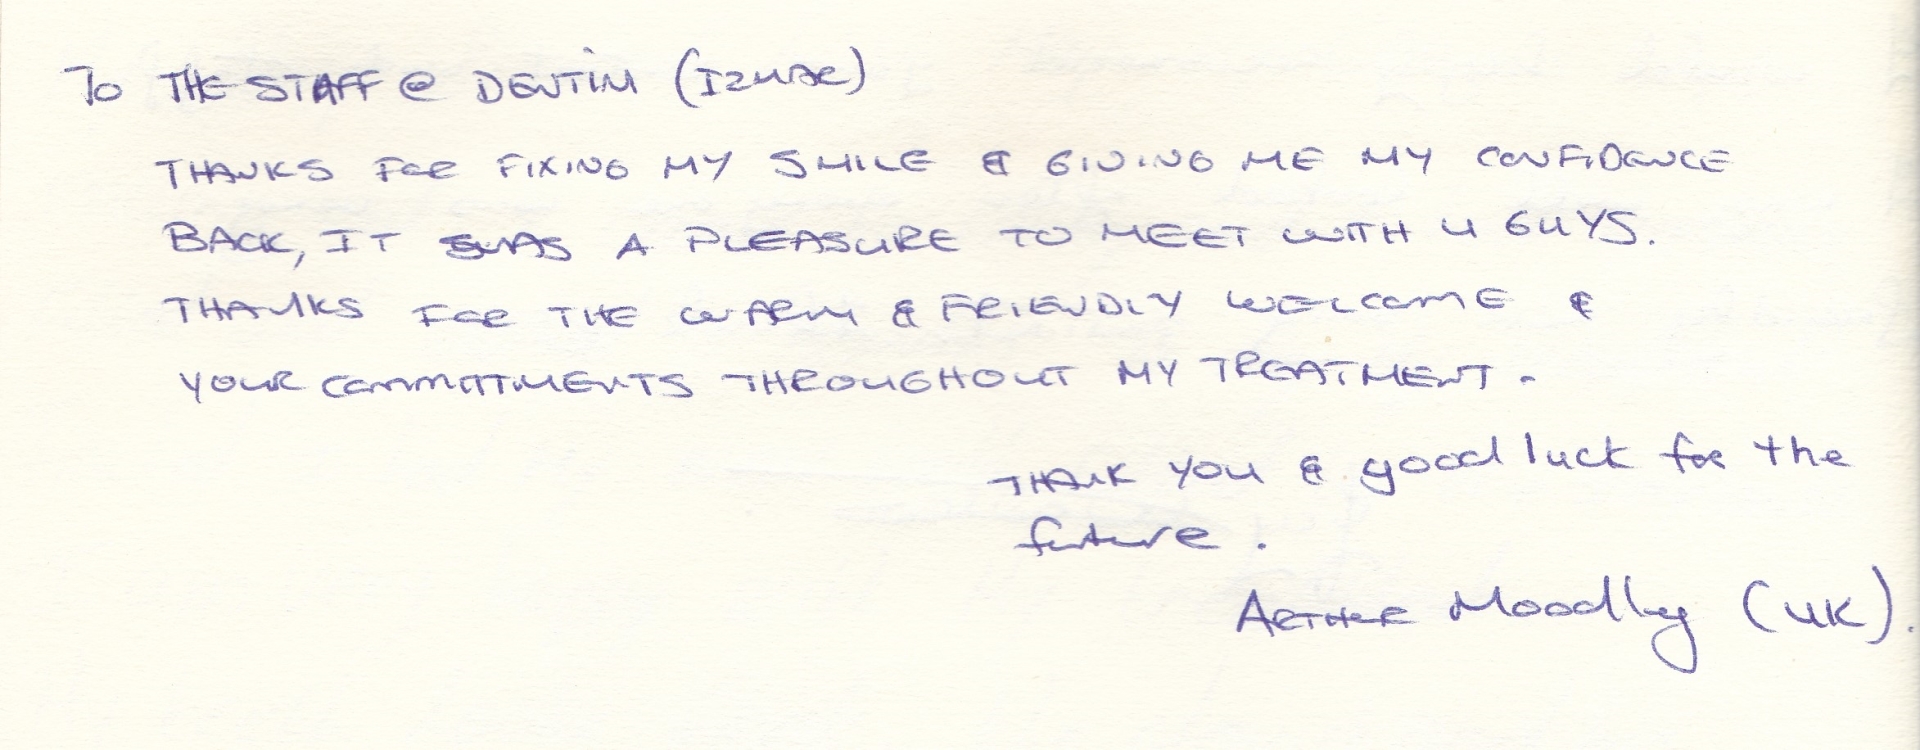 To THE STAFF @ DENTİM (IZMAR)
THANKS FOR FIXING MY SMILE & GIVING ME MY CONFIDENCE
BACK, IT WAS A PLEASURE TO MEET WITH U GUYS.
THANKS FOR THE WARM & FRIENDLY WELCOME &
YOUR COMMITTMENTS THROUGHOUT MY TREATMENT.
THANK YOU & good luck for the
future.
ARTHUR Moodley (UK).